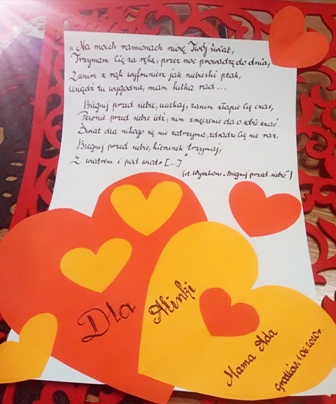 „Na moich ramionach niosę Twój świat,
Trzymam Cię za rękę, przez noc prowadzę do dnia,
Zanim z rąk wyfruniesz jak niebieski ptak,
Usiądź tu wygodnie, mam kilka rad...
Biegnij przed siebie, uciekaj, zanim złapie Cię czas,
Pewnie przed siebie idź, nim zmęczenie da o sobie znać
Świat dla nikogo się nie zatrzyma, zdradzi Cię nie raz,
Biegnij przed siebie, kierunek trzymaj,
Z wiatrem i pod wiatr [...]"
(A. Wyszkoni „Biegnij przed siebie")
Dla
Alinki
Mama Ada
06